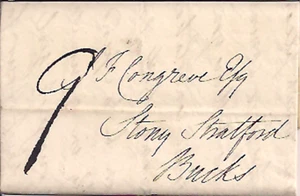 9
J F Congreve Esq
Stony Stratford
Bucks